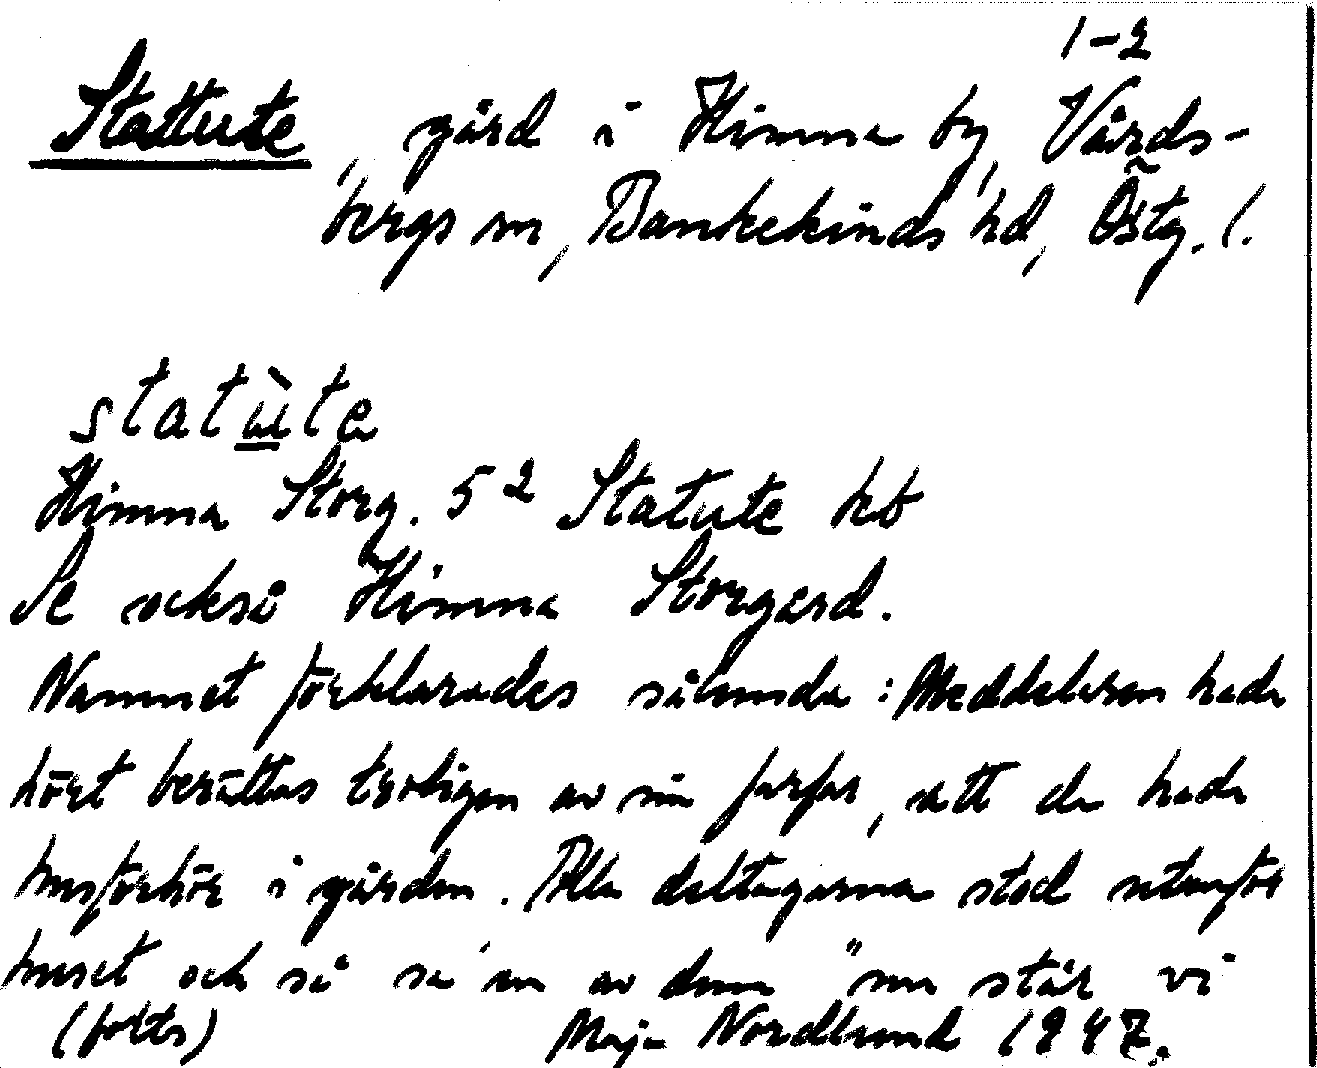 1-2
Stattute, gård i Himna by, Vårds-
bergs sn, Bankekinds hd, Östg. l.
statùte
Himna Storg. 5² Statute kb
Se också Himna Storgård.
Namnet förklarades sålunda: Meddelaren hade
hört berättas troligen av sin farfar, att de hade
husförhör i gården. Alla deltagarna stod utanför
huset och så sa' en av dem "nu står vi
(forts) Maja Nordlund 1947.